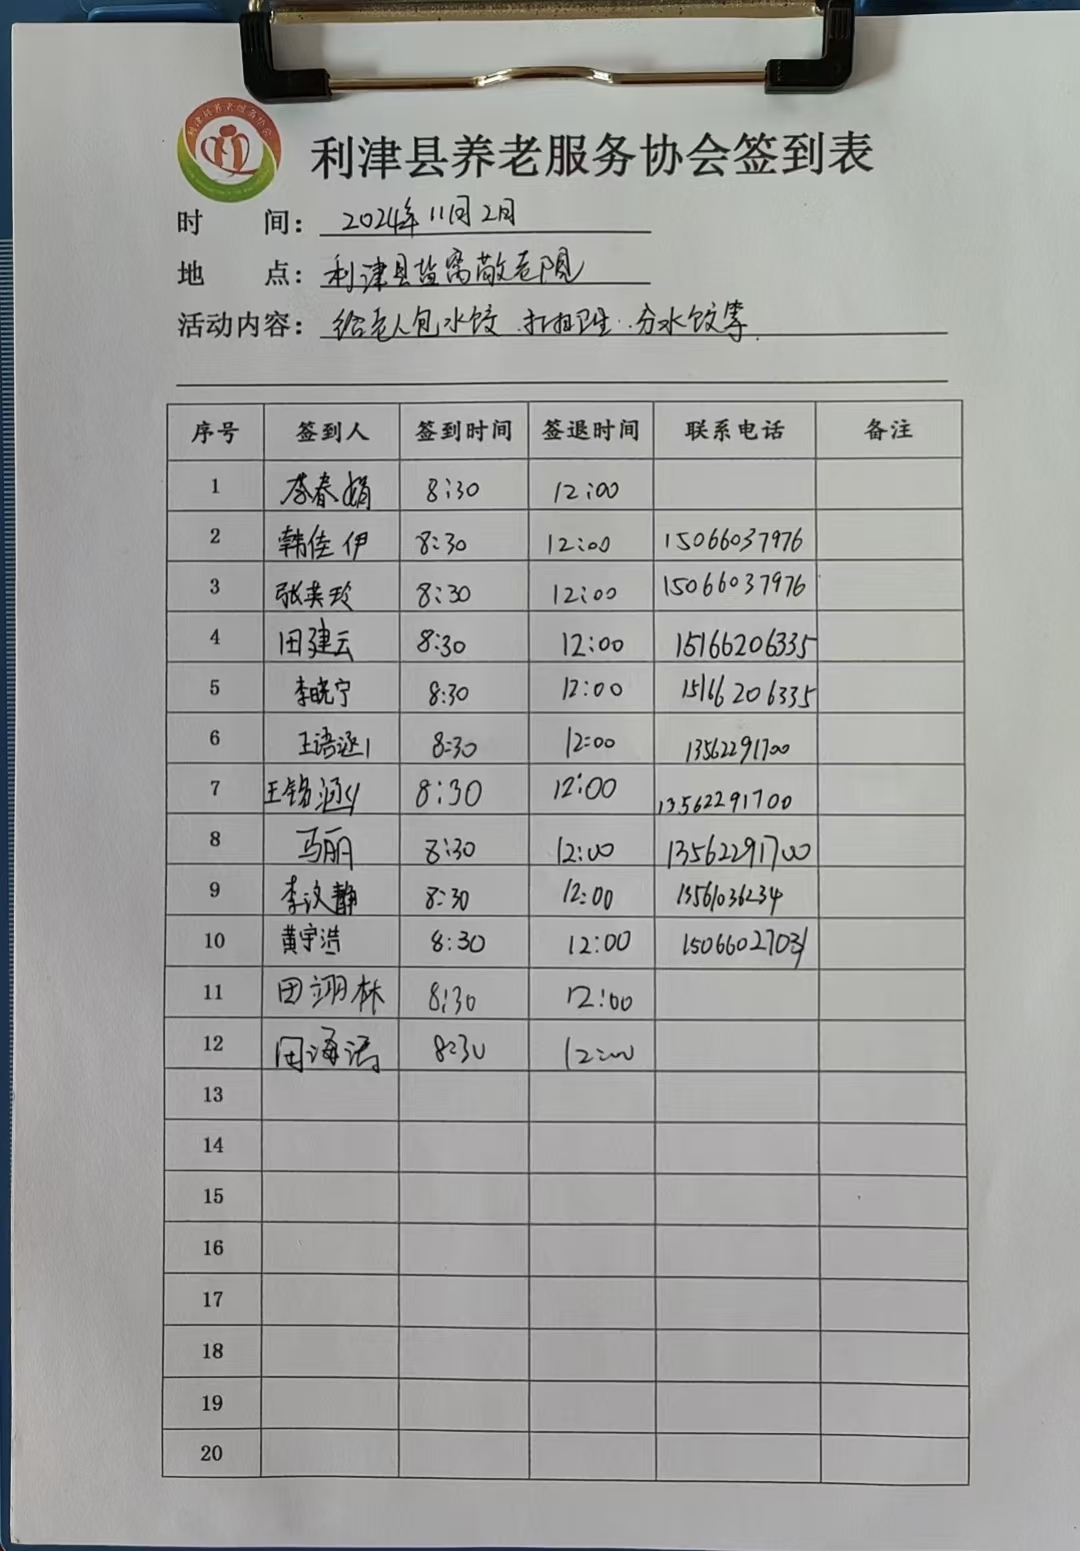 利津县养老服务协会签到表
时 间: 2024年11月2日
地 点: 利津县盐窝敬老院
活动内容: 给老人包水饺.打扫卫生.分水饺等.
序号 签到人 签到时间 签退时间 联系电话 备注
1 李春娟 8:30 12:00
2 韩佳伊 8:30 12:00 15066037976
3 张英玲 8:30 12:00 15066037976
4 田建云 8:30 12:00 15166206335
5 李晓宁 8:30 12:00 15166206335
6 王语涵 8:30 12:00 13562291700
7 王铭涵 8:30 12:00 13562291700
8 马丽 8:30 12:00 13562291700
9 李汶静 8:30 12:00 13561036234
10 黄宇浩 8:30 12:00 15066027031
11 田翊林 8:30 12:00
12 田海涛 8:30 12:00
13
14
15
16
17
18
19
20